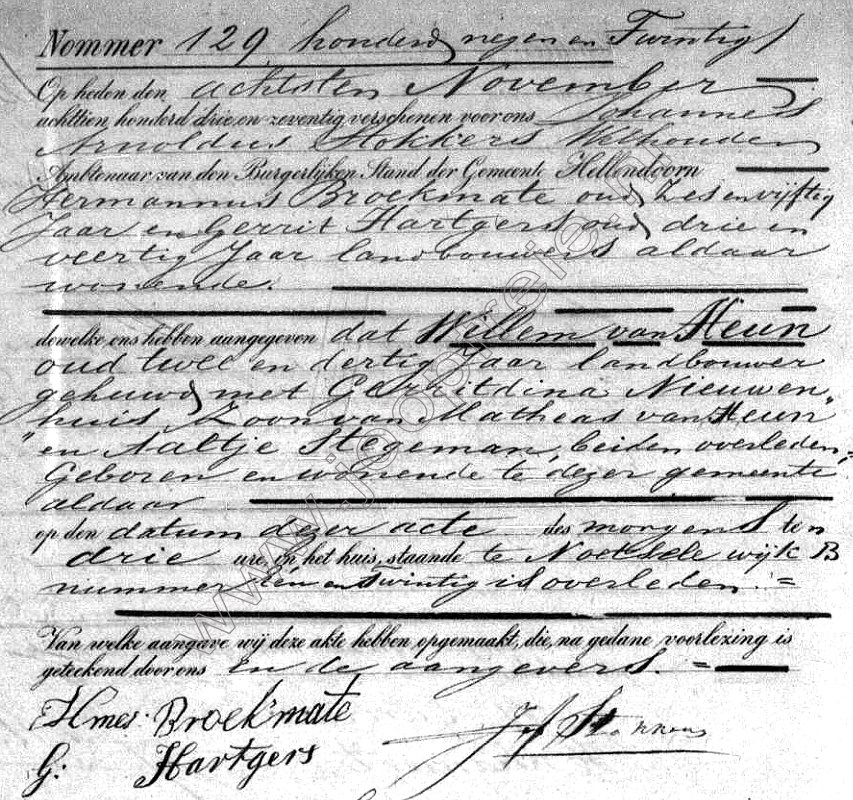 Nommer 129 honderd negen en Twintig /
Op heden den achtsten November
achttien honderd drie en zeventig verschenen voor ons Johannes
Arnoldus Stokkers Wethouder
Ambtenaar van den Burgerlijken Stand der Gemeente Hellendoorn
Hermannus Broekmate oud Zes en vijftig
Jaar en Gerrit Hartgers oud drie en
veertig Jaar landbouwers aldaar
wonende.
dewelke ons hebben aangegeven dat Willem van Heun
oud twee en dertig Jaar landbouwer
gehuwd met Gerritdina Nieuwen„
huis, Zoon van Matheas van Heun
„en Aaltje Stegeman, beiden overleden,=
Geboren en wonende te dezer gemeente
aldaar
op den datum dezer acte des morgens ten
drie ure, in het huis, staande te Noetsele wijk B
nummer en twintig is overleden. =
Van welke aangave wij deze akte hebben opgemaakt, die, na gedane voorlezing is
geteekend door ons en de aangevers. =
Hmes. Broekmate
G: Hartgers